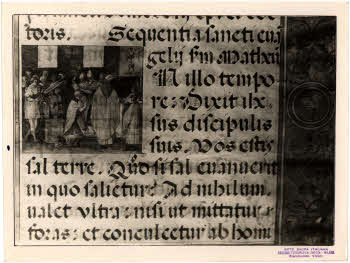 toris. Sequentia sancti euā
gelij s̄m Matheū
In illo tempo
re: Dixit ihe
sus discipulis
suis. Vos estis
sal terre. Quod si sal euanuerit
in quo salietur? Ad nihilum
ualet ultra: nisi ut mittatur
foras: et conculcetur ab homi